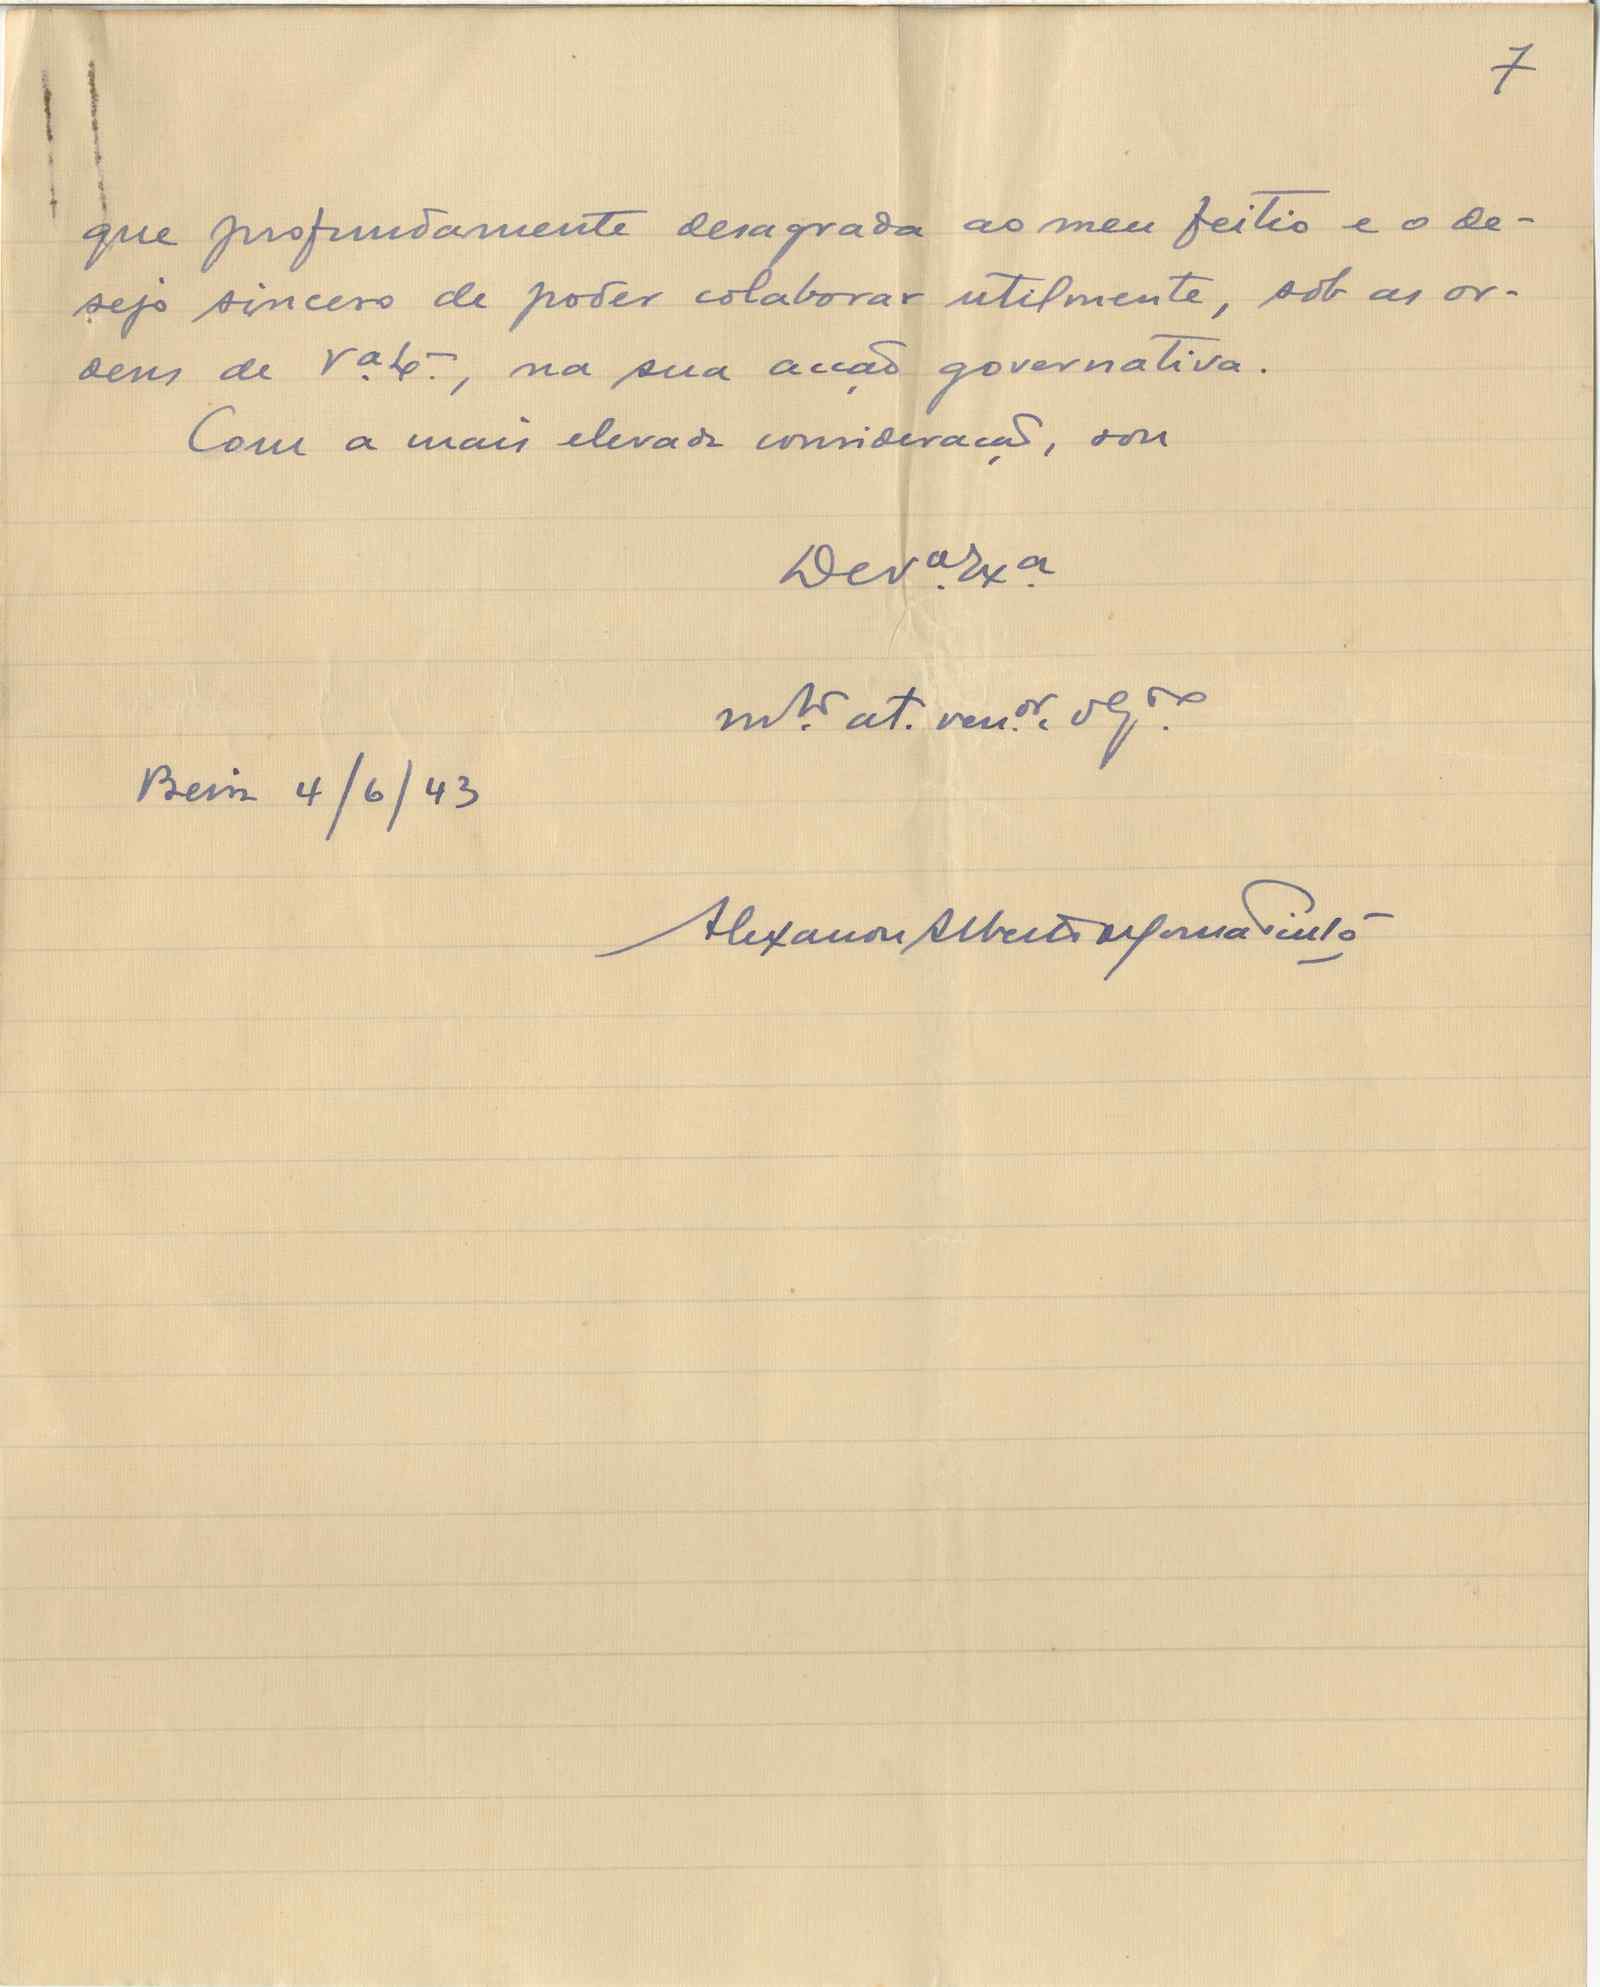 7
que profundamente desagrada ao meu feitio e o de-
sejo sincero de poder colaborar utilmente, sob as or-
dens de V.ª Ex.ª, na sua acção governativa.
Com a mais elevada consideração, sou
De V.ª Ex.ª
m.to at. ven.or e obg.do
Beira 4/6/43
Alexandre Alberto de Sousa Pinto